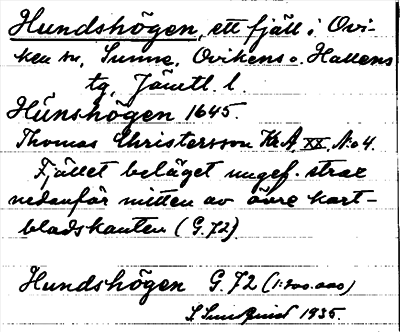 Hundshögen, ett fjäll i Ovi-
ken sn, Sunne, Ovikens o. Hallens
tg, Jämtl. l.
Húnshögen 1645.
Thomas Christersson Kr. A XX, No 4.
Fjället beläget ungef. strax
nedanför mitten av övre kart-
bladskanten (G. 72)
Hundshögen G. 72 (1:200.000)
S. Sundquist 1935.